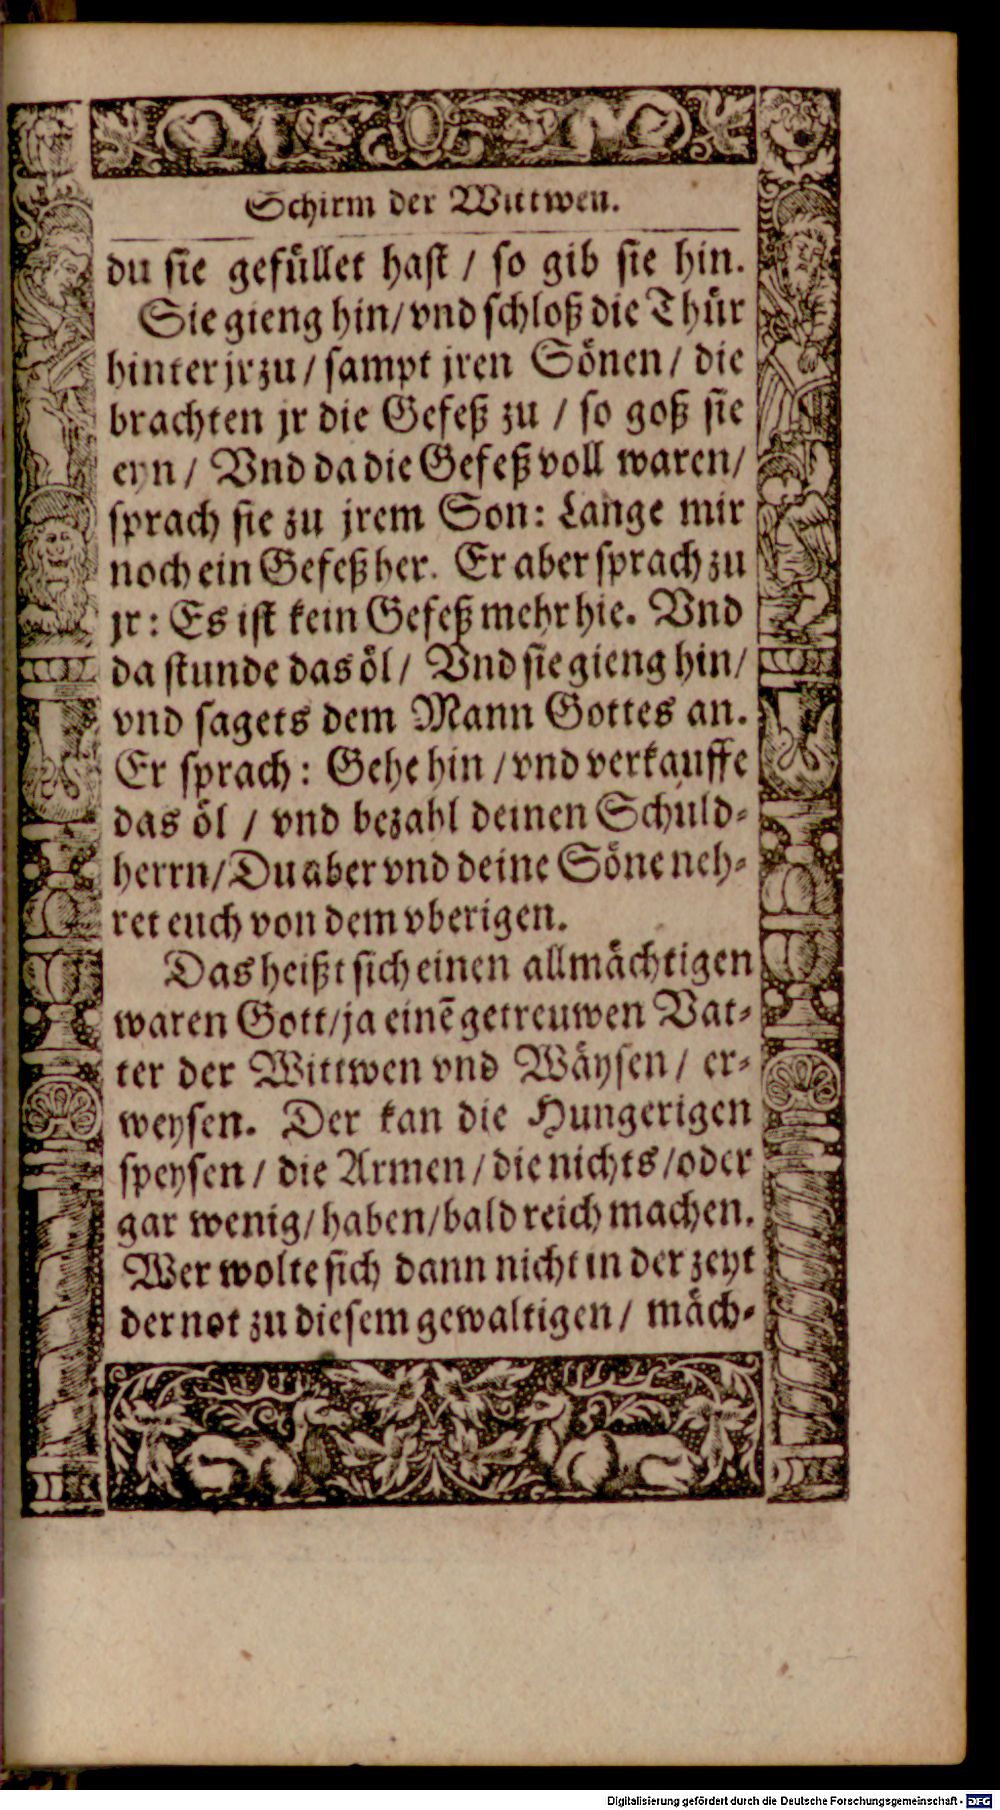 Schirm der Wittwen.
du sie gefüllet hast / so gib sie hin.
Sie gieng hin/ vnd schloß die Thür
hinter jr zu / sampt jren Sönen / die
brachten jr die Gefeß zu / so goß sie
eyn / Vnd da die Gefeß voll waren/
sprach sie zu jrem Son: Lange mir
noch ein Gefeß her. Er aber sprach zu
jr: Es ist kein Gefeß mehr hie. Vnd
da stunde das öl / Vnd sie gieng hin/
vnd sagets dem Mann Gottes an.
Er sprach: Gehe hin / vnd verkauffe
das öl / vnd bezahl deinen Schuld-
herrn/ Du aber vnd deine Söne neh-
ret euch von dem vberigen.
Das heißt sich einen allmächtigen
waren Gott/ ja einē getreuwen Vat-
ter der Wittwen vnd Wäysen / er-
weysen. Der kan die Hungerigen
speysen / die Armen / die nichts / oder
gar wenig/ haben/ bald reich machen.
Wer wolte sich dann nicht in der zeyt
der not zu diesem gewaltigen / mäch-
Digitalisierung gefördert durch die Deutsche Forschungsgemeinschaft - DFG